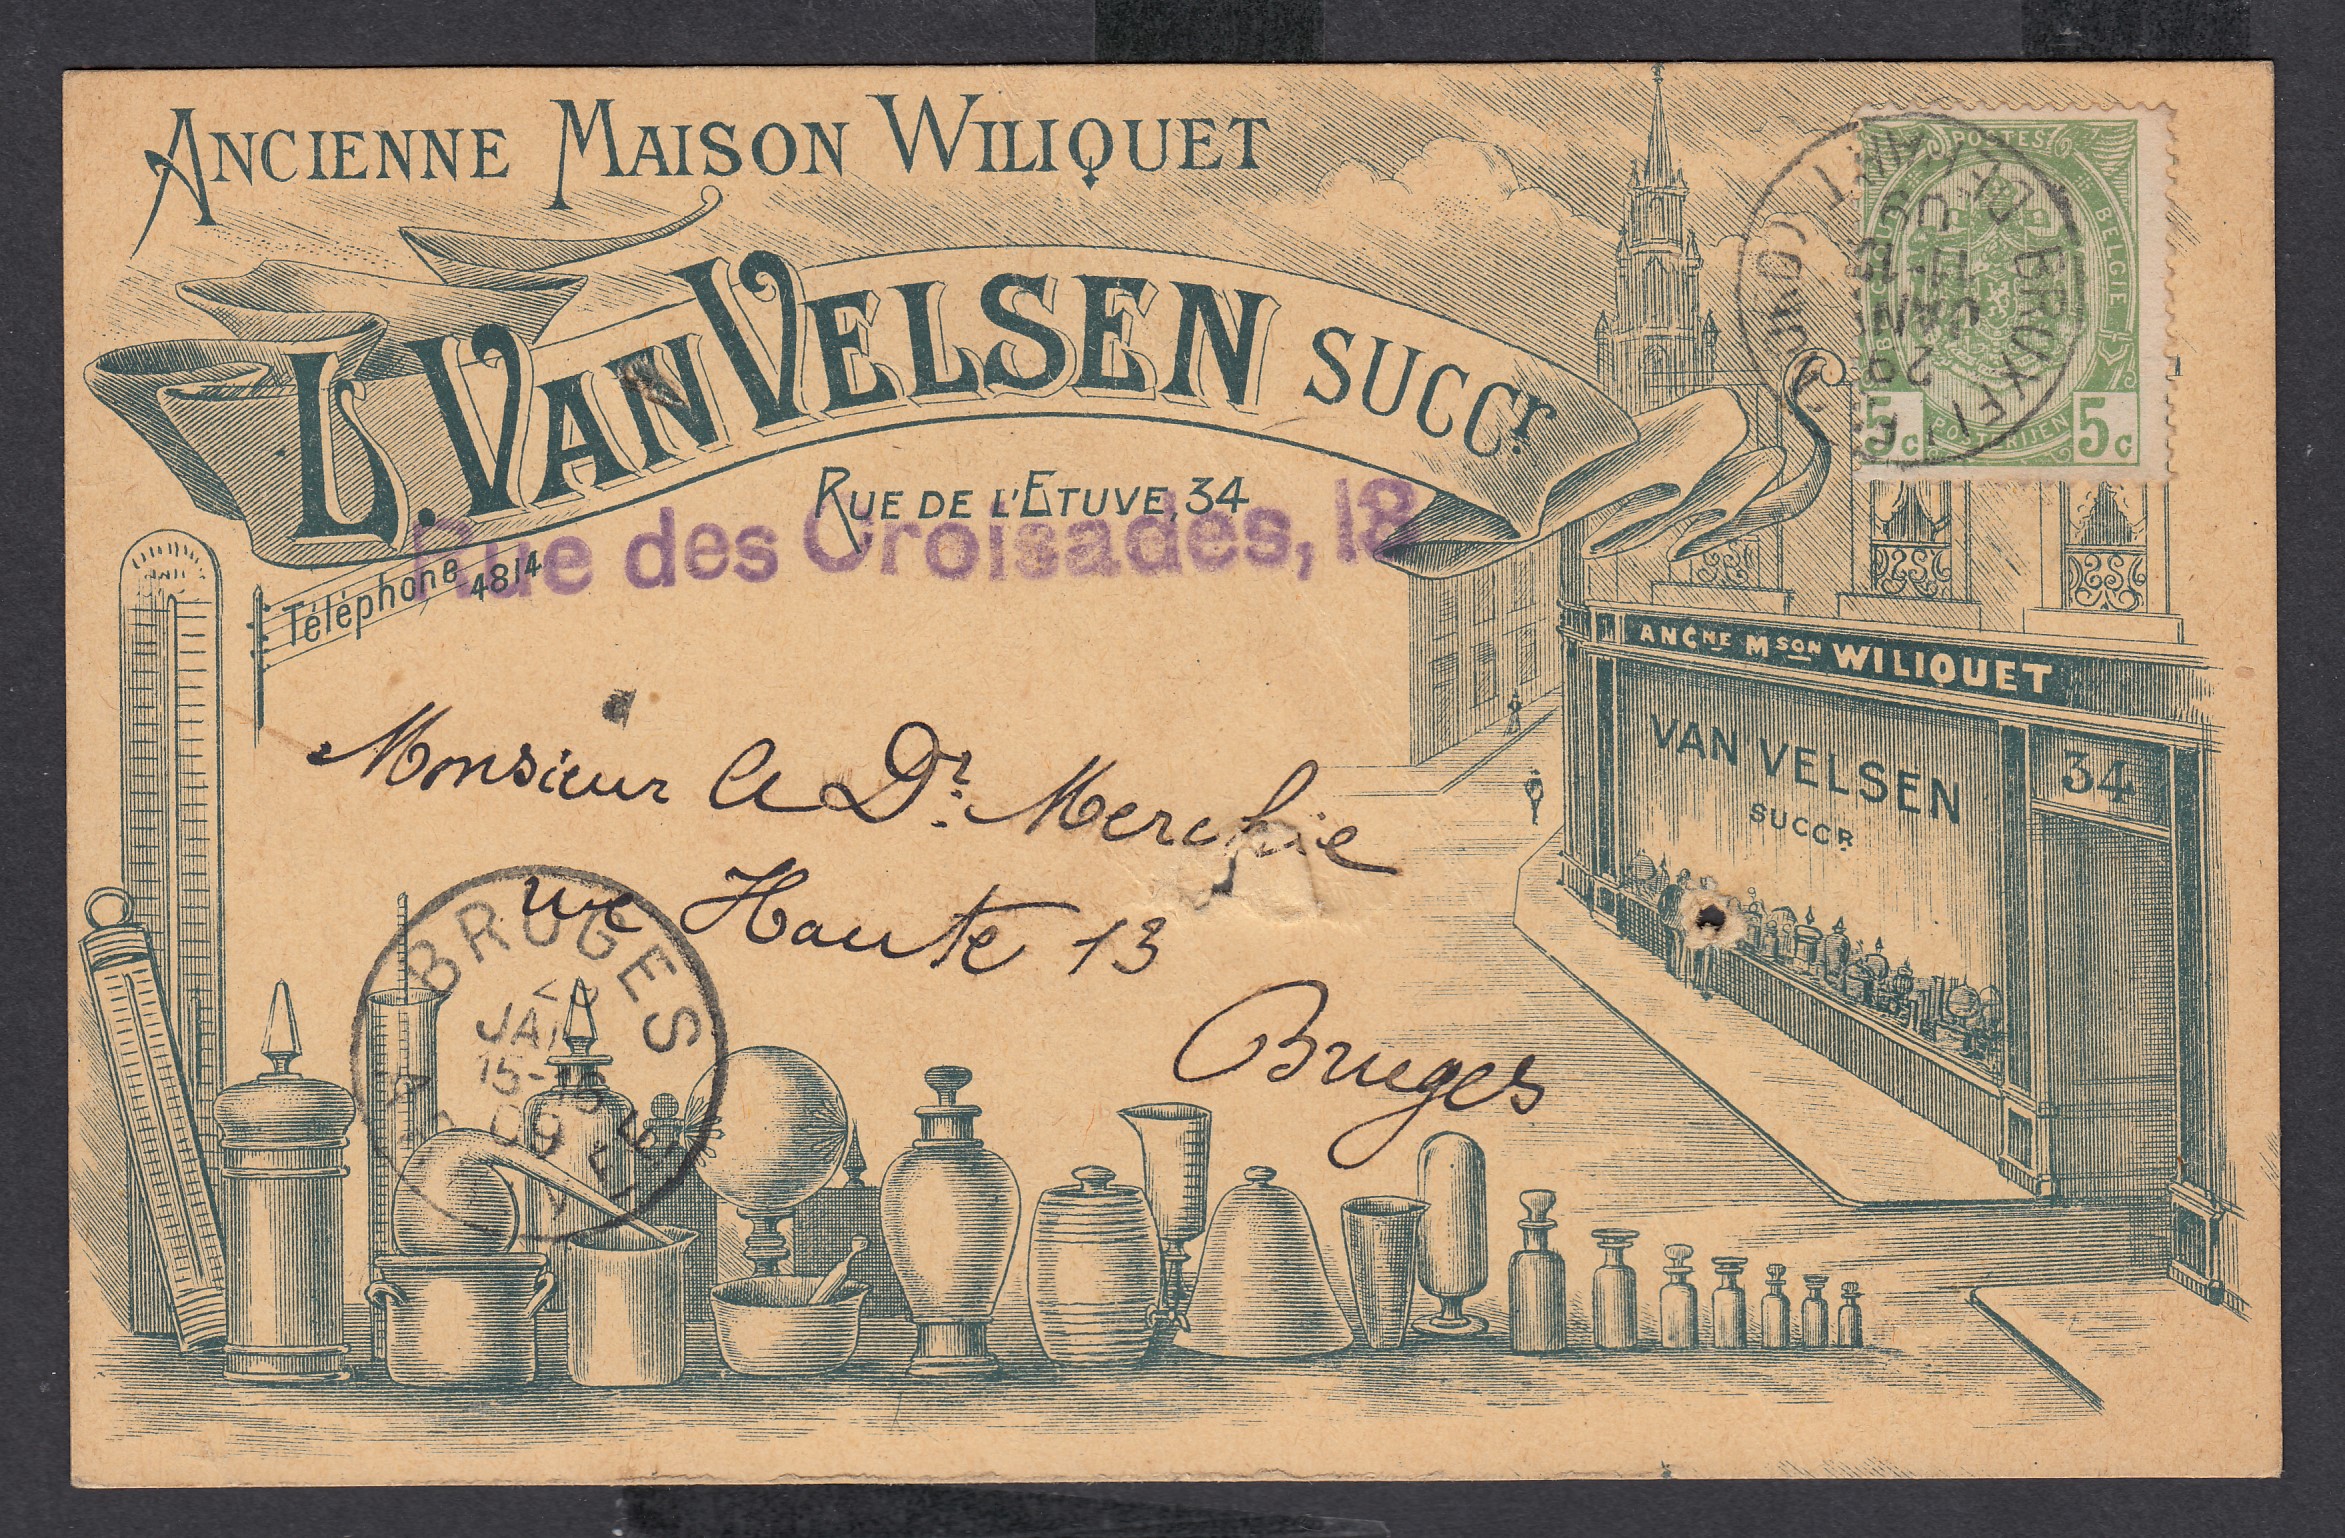 ANCIENNE MAISON WILIQUET
L. VAN VELSEN SUCCr.
RUE DE L'ETUVE, 34
Rue des Croisades, 18
Téléphone 4814
POSTES
BELGIQUE
BELGIE
POSTERIJEN
5c 5c
29
JANV
11-12
09
ANCNE MSON WILIQUET
VAN VELSEN
SUCCR.
34
Monsieur le Dr. Merchie
rue Haute 13
Bruges
BRUGES
JAN
15-16
09